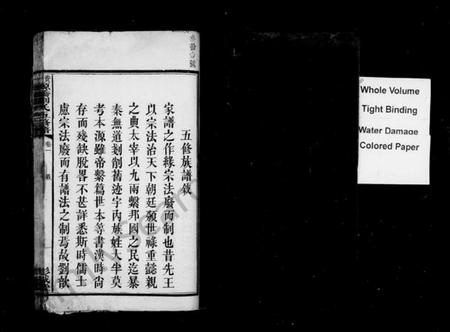 五修族譜敘
家譜之作緣宗法廢而制也昔先王
以宗法治天下朝廷頒世祿重懿親
之典太宰以九兩繫邦國之民迄暴
秦無道剗削舊迹宇內族姓大半莫
考本源雖帝繫篇世本等書漢時尚
存而殘缺脫畧不甚詳悉斯時儒士
慮宗法廢而有譜法之制焉故劉歆
卷一
敘
Whole Volume
Tight Binding
Water Damage
Colored Paper